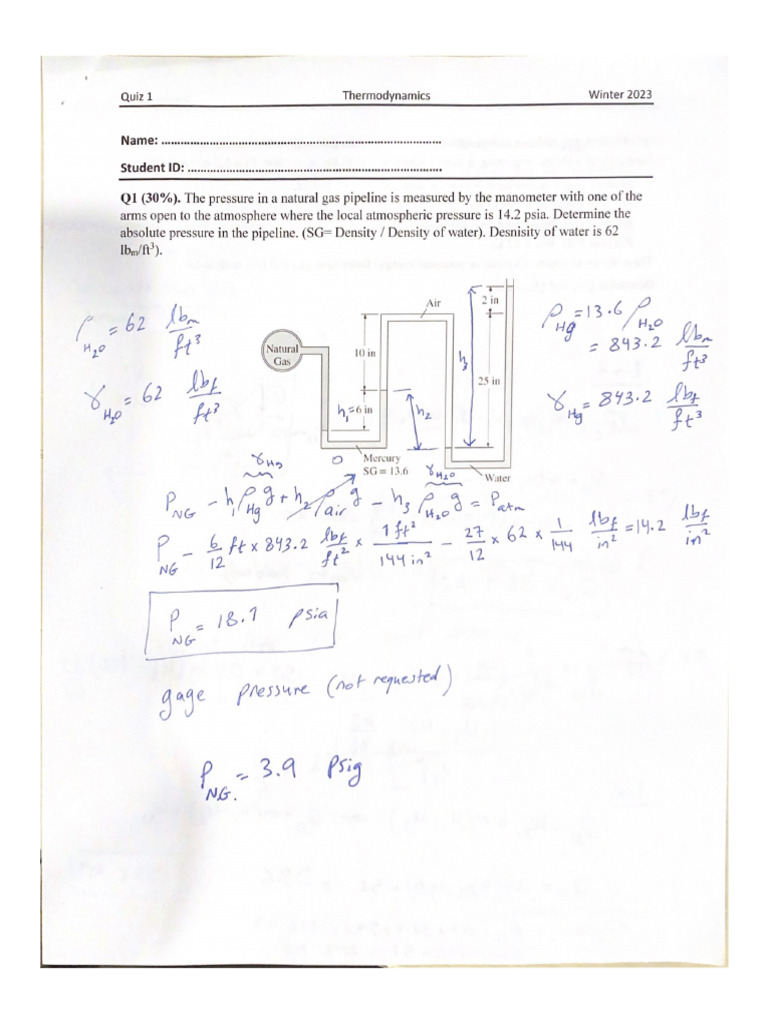 Quiz 1 Thermodynamics Winter 2023
Name: ........................................................................
Student ID: .................................................................
Q1 (30%). The pressure in a natural gas pipeline is measured by the manometer with one of the
arms open to the atmosphere where the local atmospheric pressure is 14.2 psia. Determine the
absolute pressure in the pipeline. (SG= Density / Density of water). Desnisity of water is 62
lbm/ft³).
Air
2 in
Natural
Gas
10 in
25 in
h₁=6 in
h₂
h₃
Mercury
SG = 13.6
Water
ρH₂O = 62 lbm/ft³
γH₂O = 62 lbf/ft³
ρHg = 13.6 ρH₂O
= 843.2 lbm/ft³
γHg = 843.2 lbf/ft³
γHg 0 γH₂O
PNG - h₁ρHg g + h₂ρair g - h₃ρH₂O g = Patm
PNG - 6/12 ft x 843.2 lbf/ft² x 1 ft²/144 in² - 27/12 x 62 x 1/144 lbf/in² = 14.2 lbf/in²
PNG = 18.1 psia
gage pressure (not requested)
PNG. = 3.9 psig